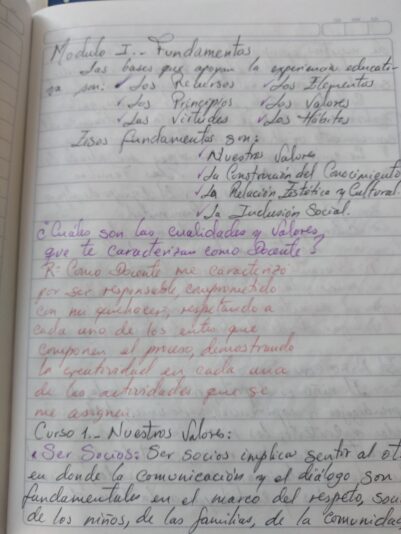 Modulo I.- Fundamentos
Las bases que apoyan la experiencia educati-
va son: ✓Los Recursos ✓Los Elementos
✓Los Principios ✓Los Valores
✓Las Virtudes ✓Los Hábitos
Esos fundamentos son:
✓Nuestros Valores
✓La Construcción del Conocimiento
✓La Relación Estética y Cultural
✓La Inclusión Social.
¿Cuáles son las cualidades y valores,
que te caracterizan como Docente?
R: Como Docente me caracterizo
por ser responsable, comprometido
con mi quehacer, respetando a
cada uno de los entes que
componen el proceso, demostrando
la creatividad en cada una
de las actividades que se
me asignen.
Curso 1.- Nuestros Valores:
• Ser Socios: Ser socios implica sentir al ot
en donde la comunicación y el diálogo son
fundamentales en el marco del respeto,
de los niños, de las familias, de la comunidad